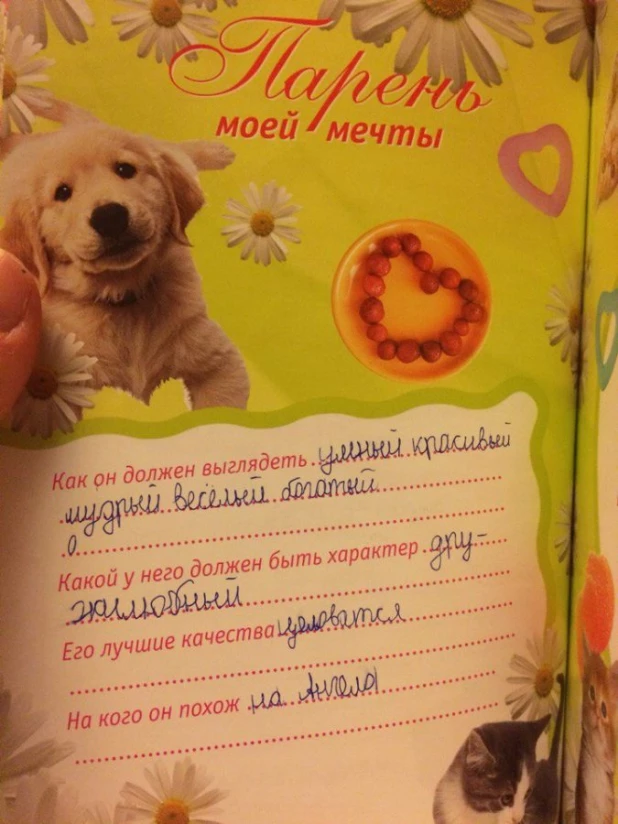 Парень
моей мечты
Как он должен выглядеть умный красивый
мудрый веселый богатый
Какой у него должен быть характер дру-
жилюбный
Его лучшие качества целоватся
На кого он похож на Ангела